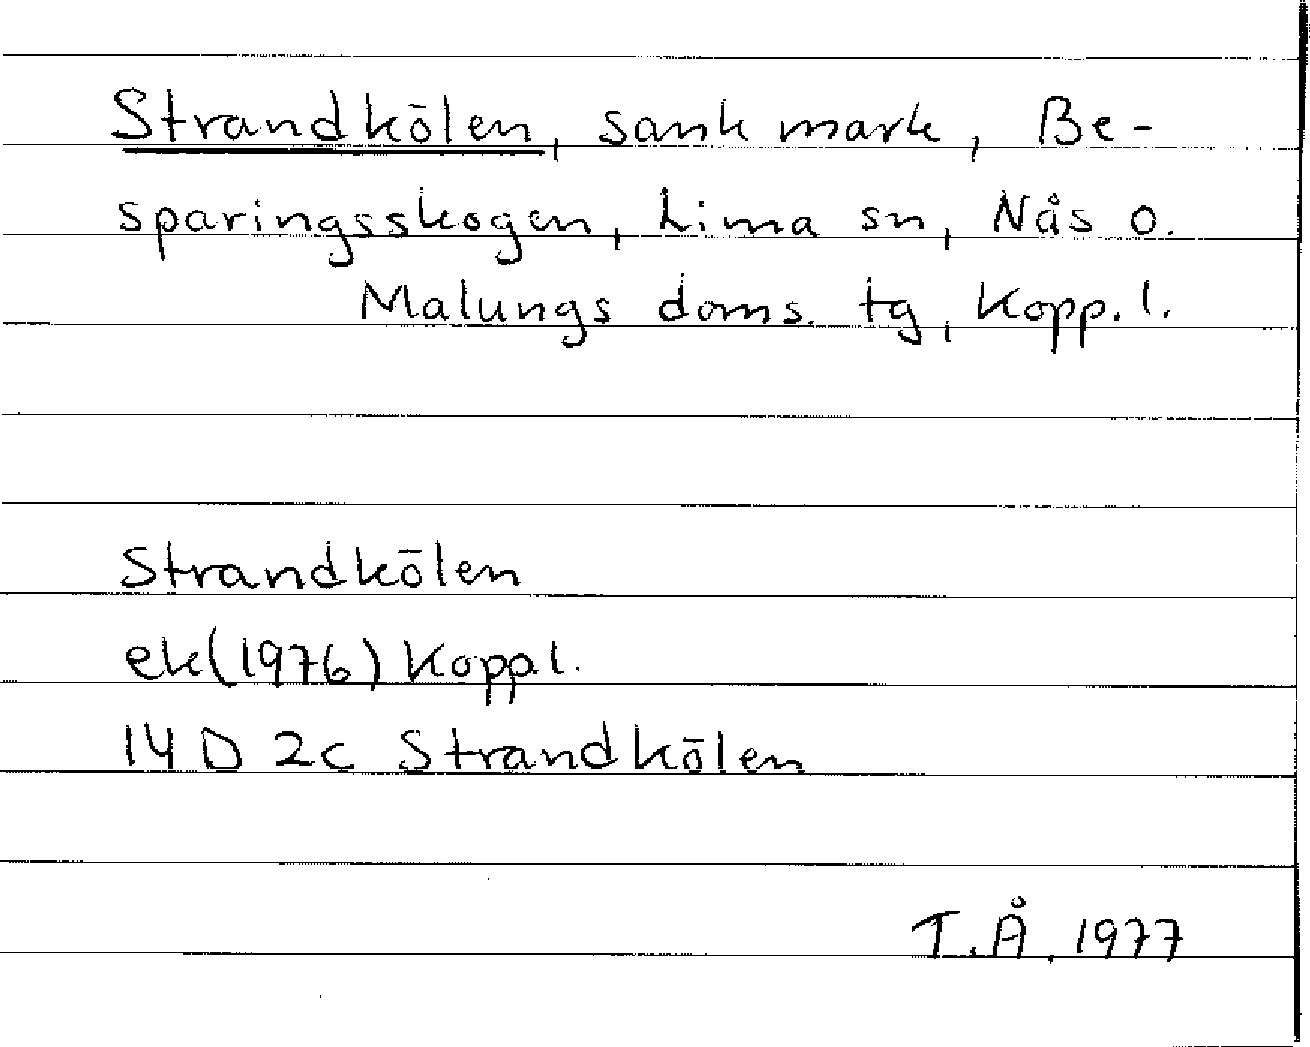 Strandkölen, sank mark, Be-
sparingsskogen, Lima sn, Nås o.
Malungs doms. tg, Kopp. l.
Strandkölen
ek(1976) Kopp l.
14 D 2c Strandkölen
T.Å. 1977